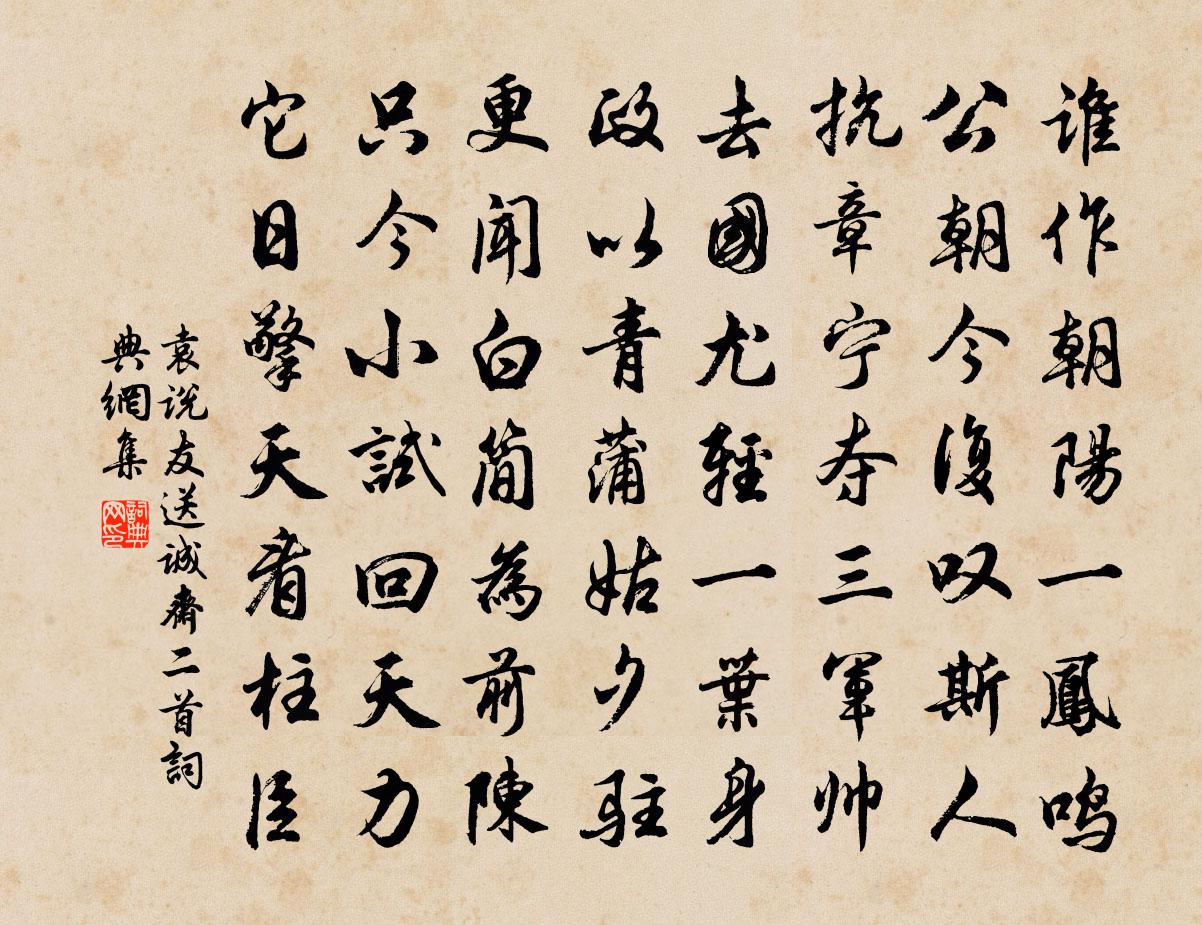 誰作朝陽一鳳鳴
公朝今復叹斯人
抗章宁夺三軍帅
去國尤輕一葉身
政以青蒲姑夕駐
更闻白简為前陳
只今小試回天力
它日擎天看柱臣
袁说友送诚齋二首詞
典網集
詞典网印